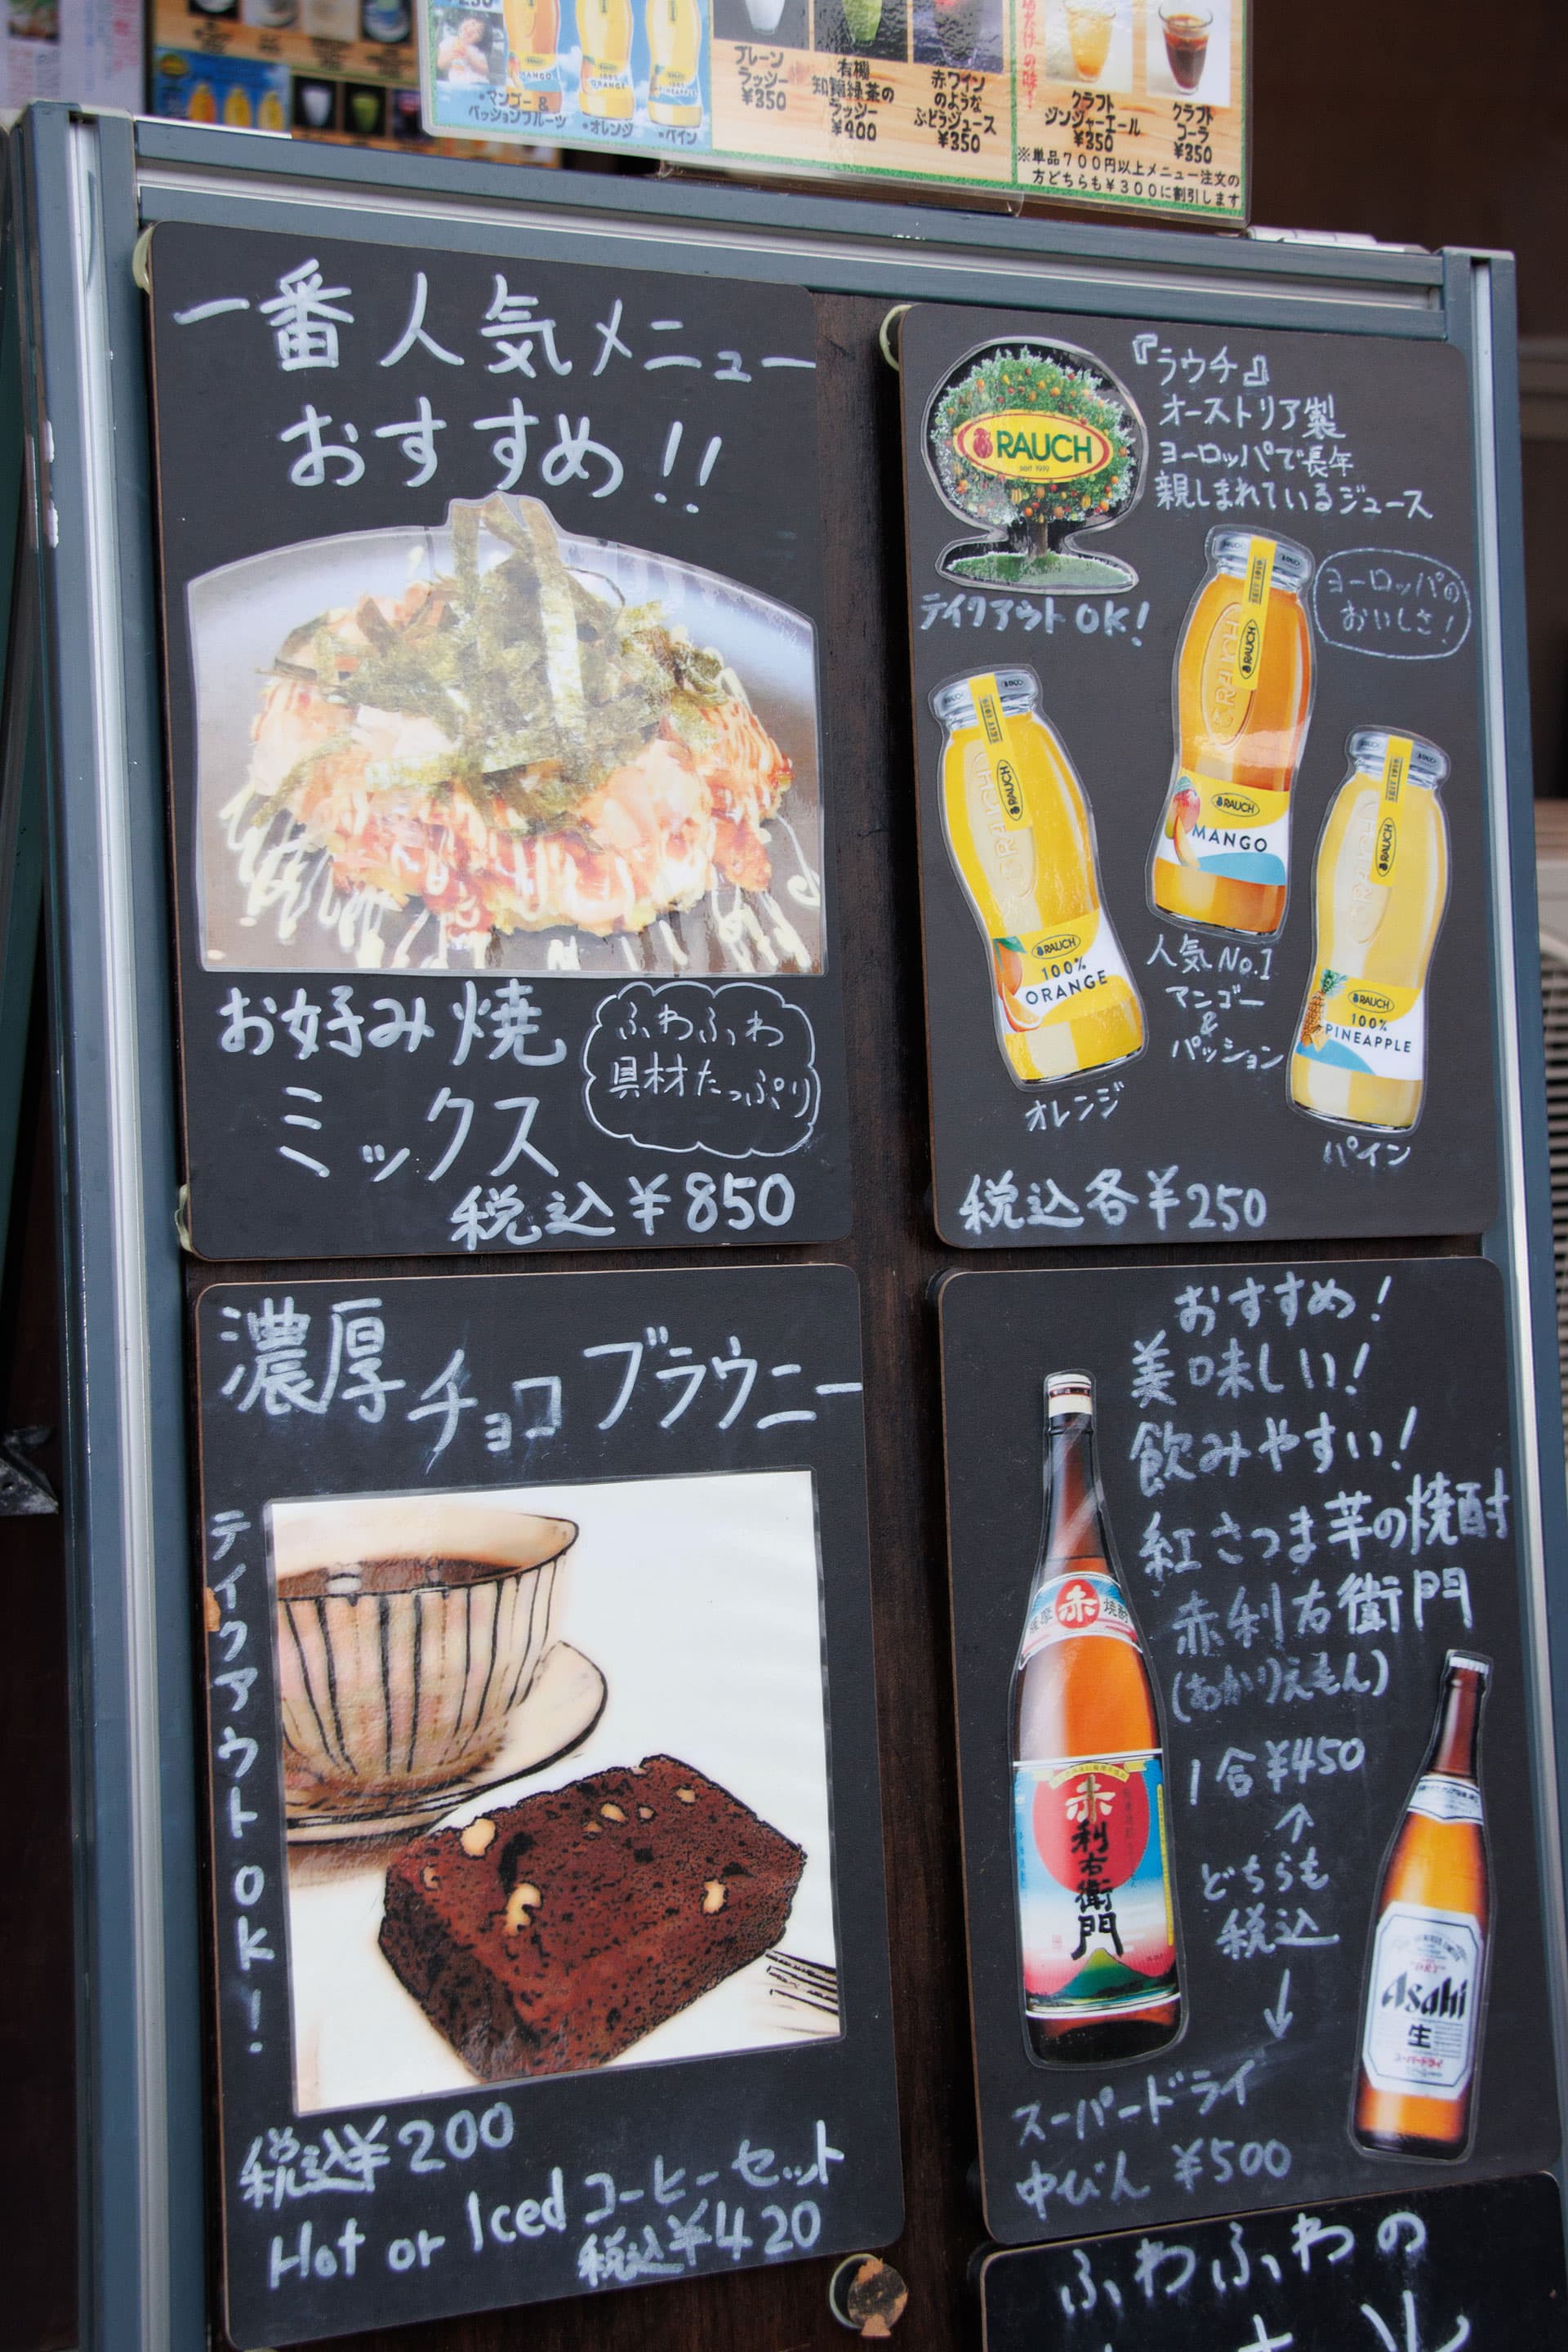 ・マンゴー &
パッションフルーツ
・オレンジ
・パイン
プレーン
ラッシー
¥350
有機
知覧緑茶の
ラッシー
¥400
赤ワイン
のような
ぶどうジュース
¥350
クラフト
ジンジャーエール
¥350
クラフト
コーラ
¥350
※単品700円以上メニュー注文の
方どちらも¥300に割引します
一番人気メニュー
おすすめ!!
お好み焼
ミックス
ふわふわ
具材たっぷり
税込¥850
RAUCH
『ラウチ』
オーストリア製
ヨーロッパで長年
親しまれているジュース
テイクアウトOK!
ヨーロッパの
おいしさ!
RAUCH
MANGO
RAUCH
100%
ORANGE
RAUCH
100%
PINEAPPLE
人気No.1
マンゴー
&
パッション
オレンジ
パイン
税込各¥250
濃厚チョコブラウニー
テイクアウトOK!
税込¥200
Hot or Iced コーヒーセット
税込¥420
おすすめ!
美味しい!
飲みやすい!
紅さつま芋の焼酎
赤利右衛門
(あかりえもん)
1合¥450
どちらも
税込
スーパードライ
中びん ¥500
赤
焼酎
赤利右衛門
Asahi
生
スーパードライ
ふわふわの